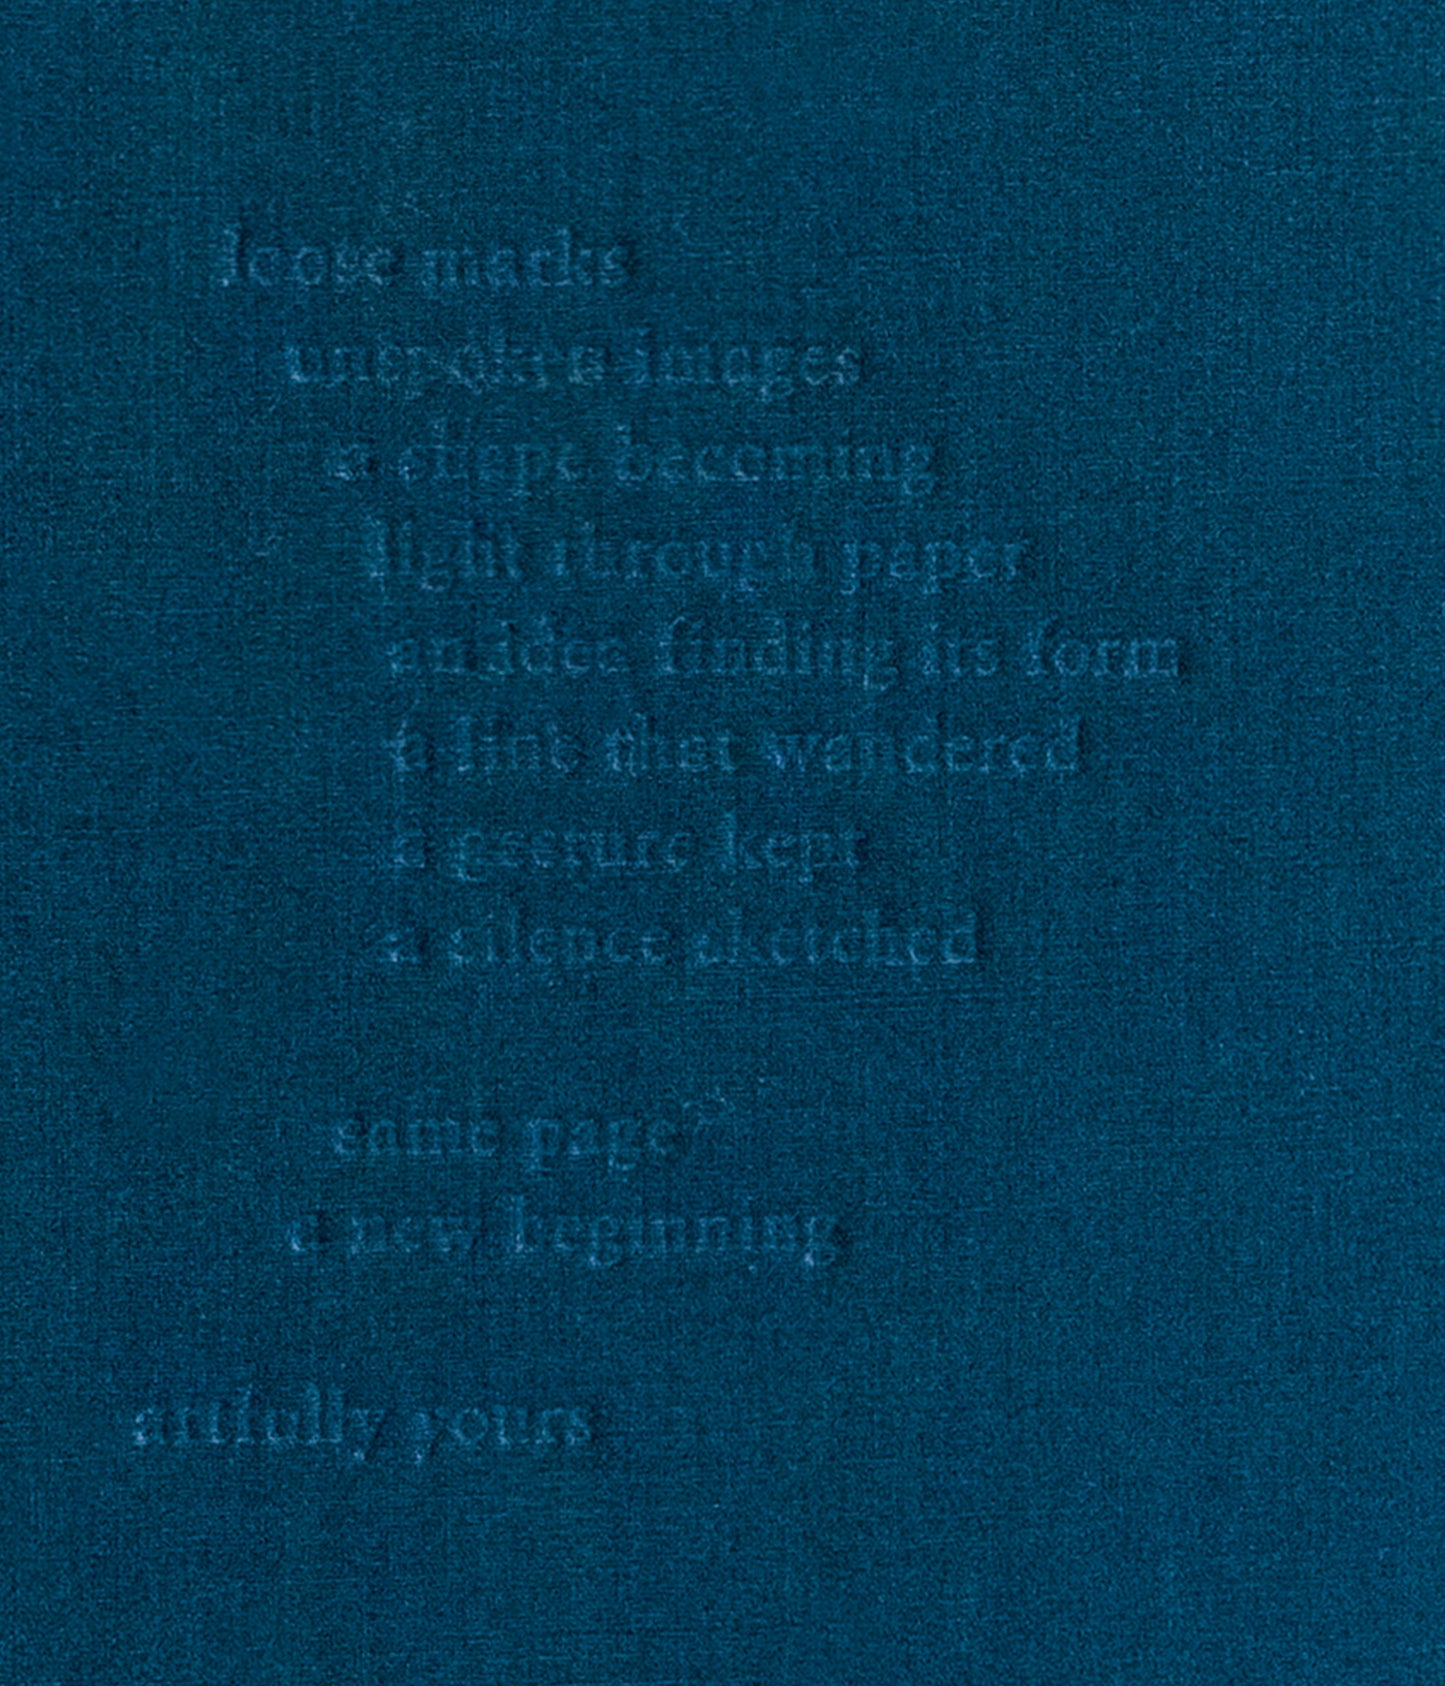 loose marks
unbroken images
a shape becoming
light through paper
an idea finding its form
a line that wandered
a gesture kept
a silence sketched
same page
a new beginning
artfully yours